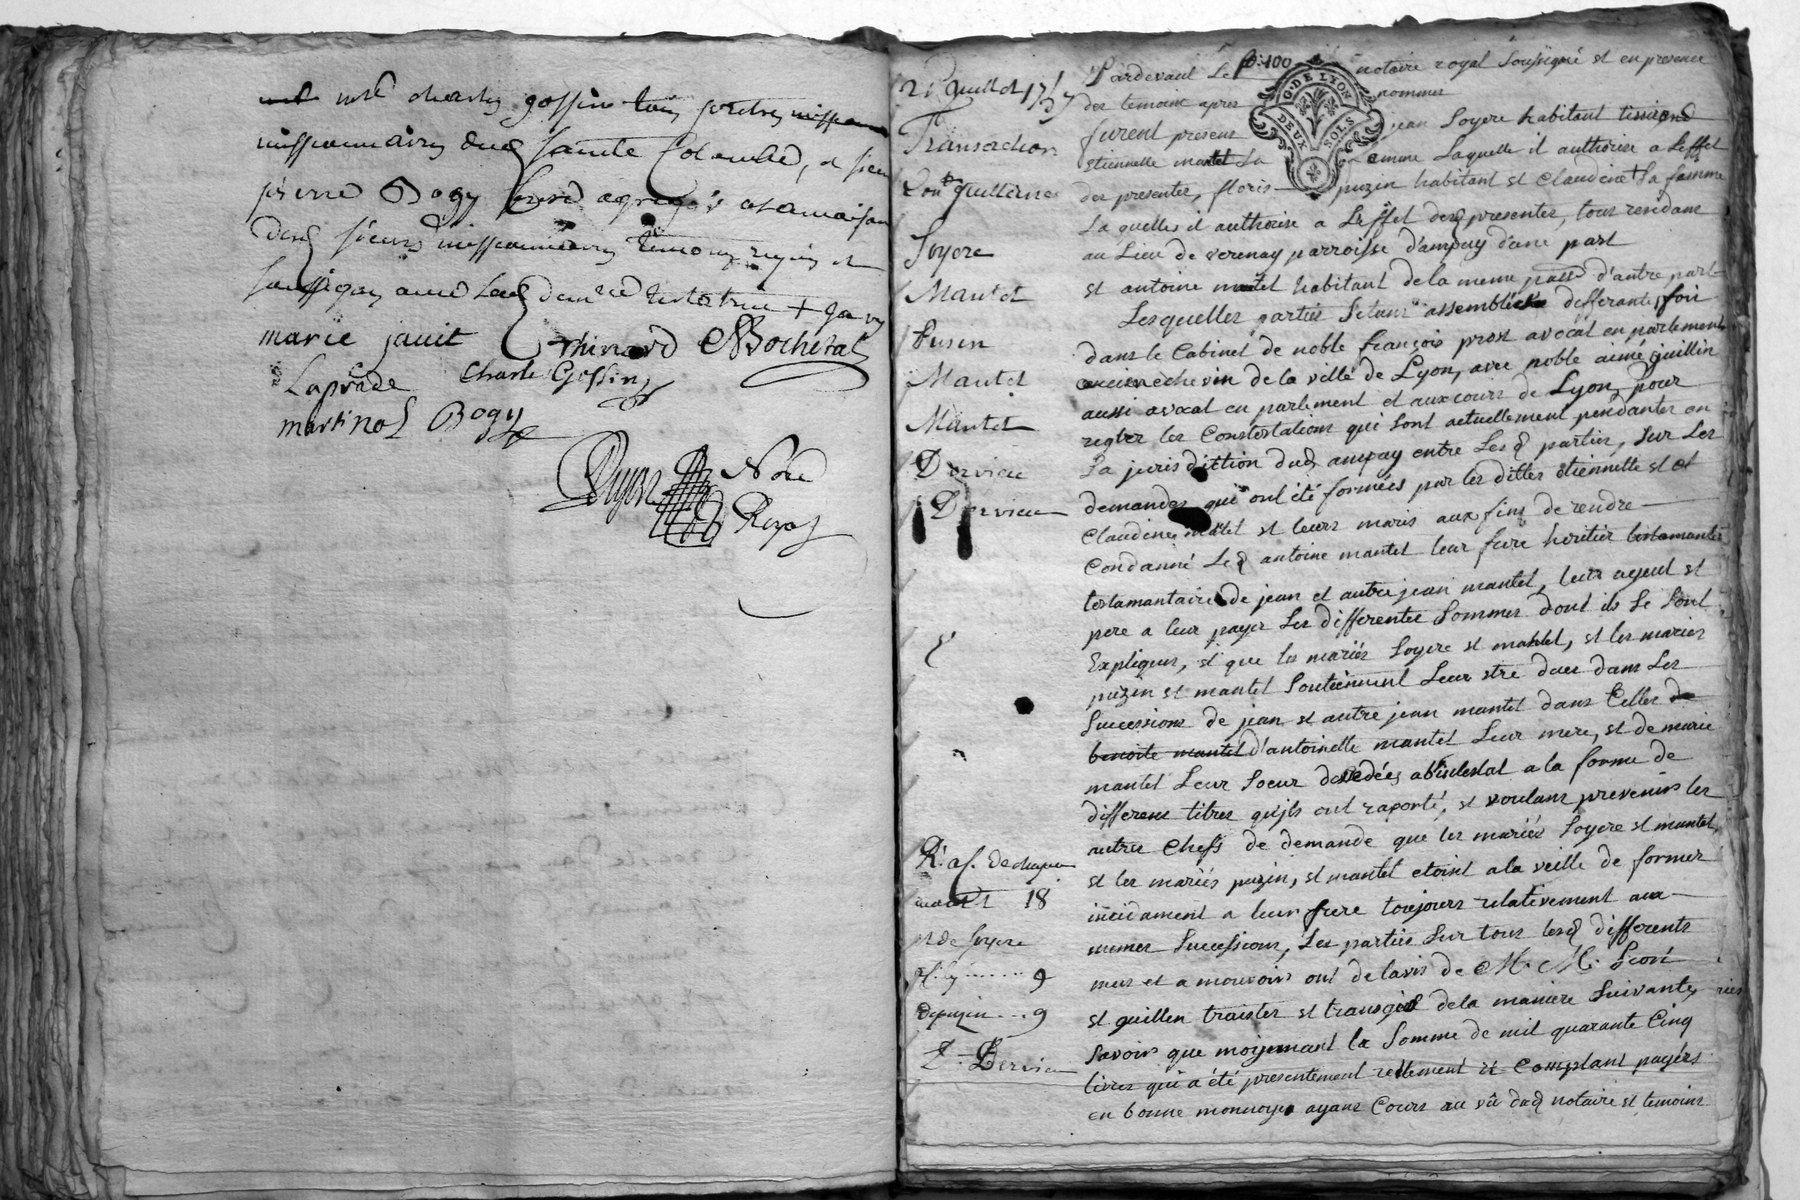 mre charles gossin tous prêtres
missionnaires dud sainte Colombe, et sieur
pierre Bogy
desd sieurs missionnaires témoins requis et
soussignés avec lad
marie javit thinard Bocheral
Laprade Charle Gossin
martinot Bogy
Notre
Royal
21 Juillet 1757
Transaction
Cont quittance
Soyere
Mantet
Pusin
Mantet
Mantet
Dervieu
Dervieu
R. af. de chaque
mantet 18
pt de soyere
9
de puzin ... 9
Dervieu
f°. 100
G. DE LYON
DEUX SOLS
Pardevant Le notaire royal soussigné et en presence
des temoins apres nommes
furent presens jean Soyere habitant
etiennette mantet sa femme Laquelle il authorise a Leffet
des presentes, floris puzin habitant et claudine sa femme
laquelles il authorise a Leffet desd presentes, tous residans
au Lieu de verenay parroisse d'ampuy d'une part
et antoine mantet habitant de la meme passe d'autre part
Lesquelles parties setant assemblées differantes fois
dans le Cabinet de noble françois prost avocat en parlement
ancien echevin de la ville de Lyon, avec noble aimé guillin
aussi avocat en parlement et aux cours de Lyon, pour
regler les Contestations qui sont actuellement pendantes en
la jurisdiction dud ampuy entre Lesd parties, sur Les
demandes qui ont été formées par les dittes etiennette et
Claudine mantet et leurs maris aux fins de rendre
Condanné Led antoine mantet leur frere heritier testamentes
testamantaire de jean et autre jean mantet, leurs ayeul et
pere a leur payer Les differentes Sommes dont ils se sont
Expliqués, et que les mariés Soyere et mantet, et les mariés
puzin et mantet soutiennent Leur etre dues dans Les
Successions de jean et autre jean mantet dans Celles de
benoite mantet d'antoinette mantet Leur mere, et de marie
mantet Leur soeur decedées abintestat a la forme de
differens titres qu'ils ont raporté, et voulans prevenir les
autres Chefs de demande que les mariés Soyere et mantet,
et les mariés puzin, et mantet etoint a la veille de former
incidament a leur frere toujours relativement aux
memes Successions, Les parties sur tous lesd differents
mus et a mouvoir ont de lavis de M. M. prost
et guillen traister et transiger de la maniere suivante,
Savoir que moyennant la Somme de mil quarante Cinq
livres qui a été presentement reellement et Comptant payées
en bonne monnoye ayans Cours au vû dud notaire et temoins